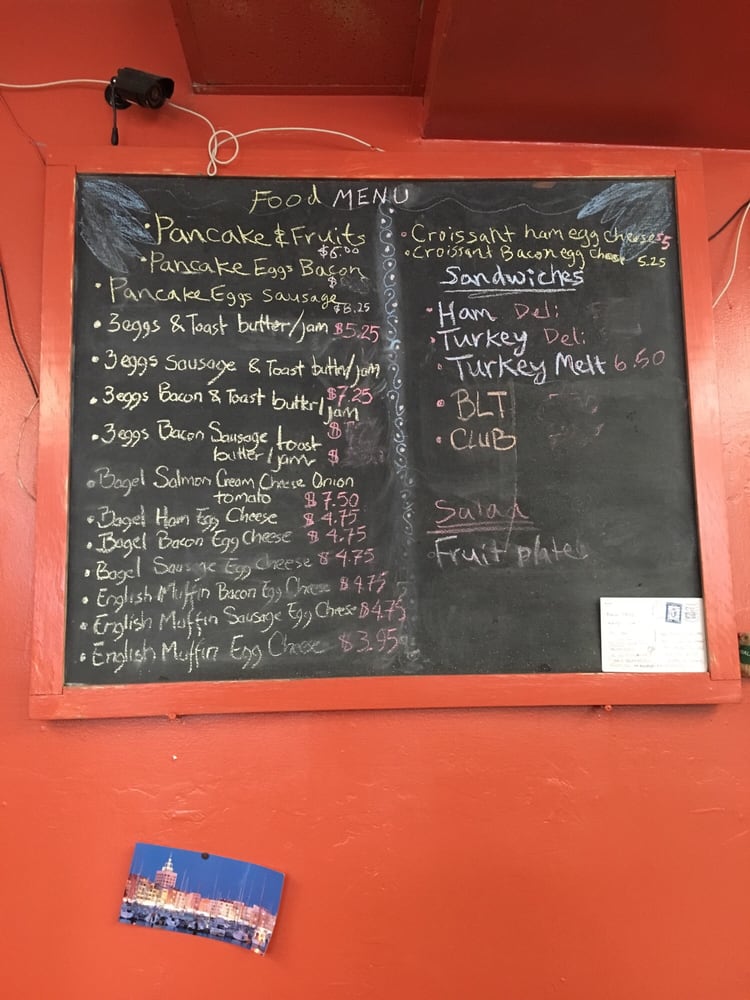 Food MENU
Pancake & Fruits
$6.00
Pancake Eggs Bacon
$
Pancake Eggs Sausage
$8.25
3eggs & Toast butter/jam $5.25
3eggs Sausage & Toast butter/jam
$7.25
3eggs Bacon & Toast butter/jam
$
3eggs Bacon Sausage toast
butter/jam $
Bagel Salmon Cream Cheese Onion
tomato $7.50
Bagel Ham Egg Cheese $4.75
Bagel Bacon Egg Cheese $4.75
Bagel Sausage Egg Cheese $4.75
English Muffin Bacon Egg Cheese $4.75
English Muffin Sausage Egg Cheese $4.75
English Muffin Egg Cheese $3.95
Croissant ham egg cheese
Croissant Bacon egg cheese 5.25
Sandwiches
Ham Deli
Turkey Deli
Turkey Melt 6.50
BLT
CLUB
Salad
Fruit plate